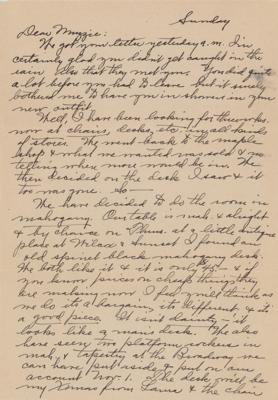 Sunday
Dear Muzzie:
We got your letter yesterday a.m. I'm
certainly glad you didn't get caught in the
rain & also that they met you. Ponded quite
a lot before you had to leave but it surely
bothered me to have you in showers in your
new outfit.
Well, I have been looking for the works
now at chairs, desks, etc. in all kinds
of stores. We went back to the maple
shop & what we wanted was sold & no
telling when more would be in. We
then decided on the desk I saw & it
too was gone. So—
We have decided to do the room in
mahogany. Our table is mah. & alright
& by chance on Thurs. at a little antique
place at Wilcox & Sunset I found an
old spinet black mahogany desk.
We both like it & it is only 45— & if
you know prices on cheap things they
are making now I feel you'll think as
we do its a bargain, its different & its
a good piece. It isn't dainty it
looks like a man's desk. We also
have seen two platform rockers in
mah. & tapestry at the Broadway we
can have put aside & put on our
account Nov. 1. The desk will be
my Xmas from & the chair